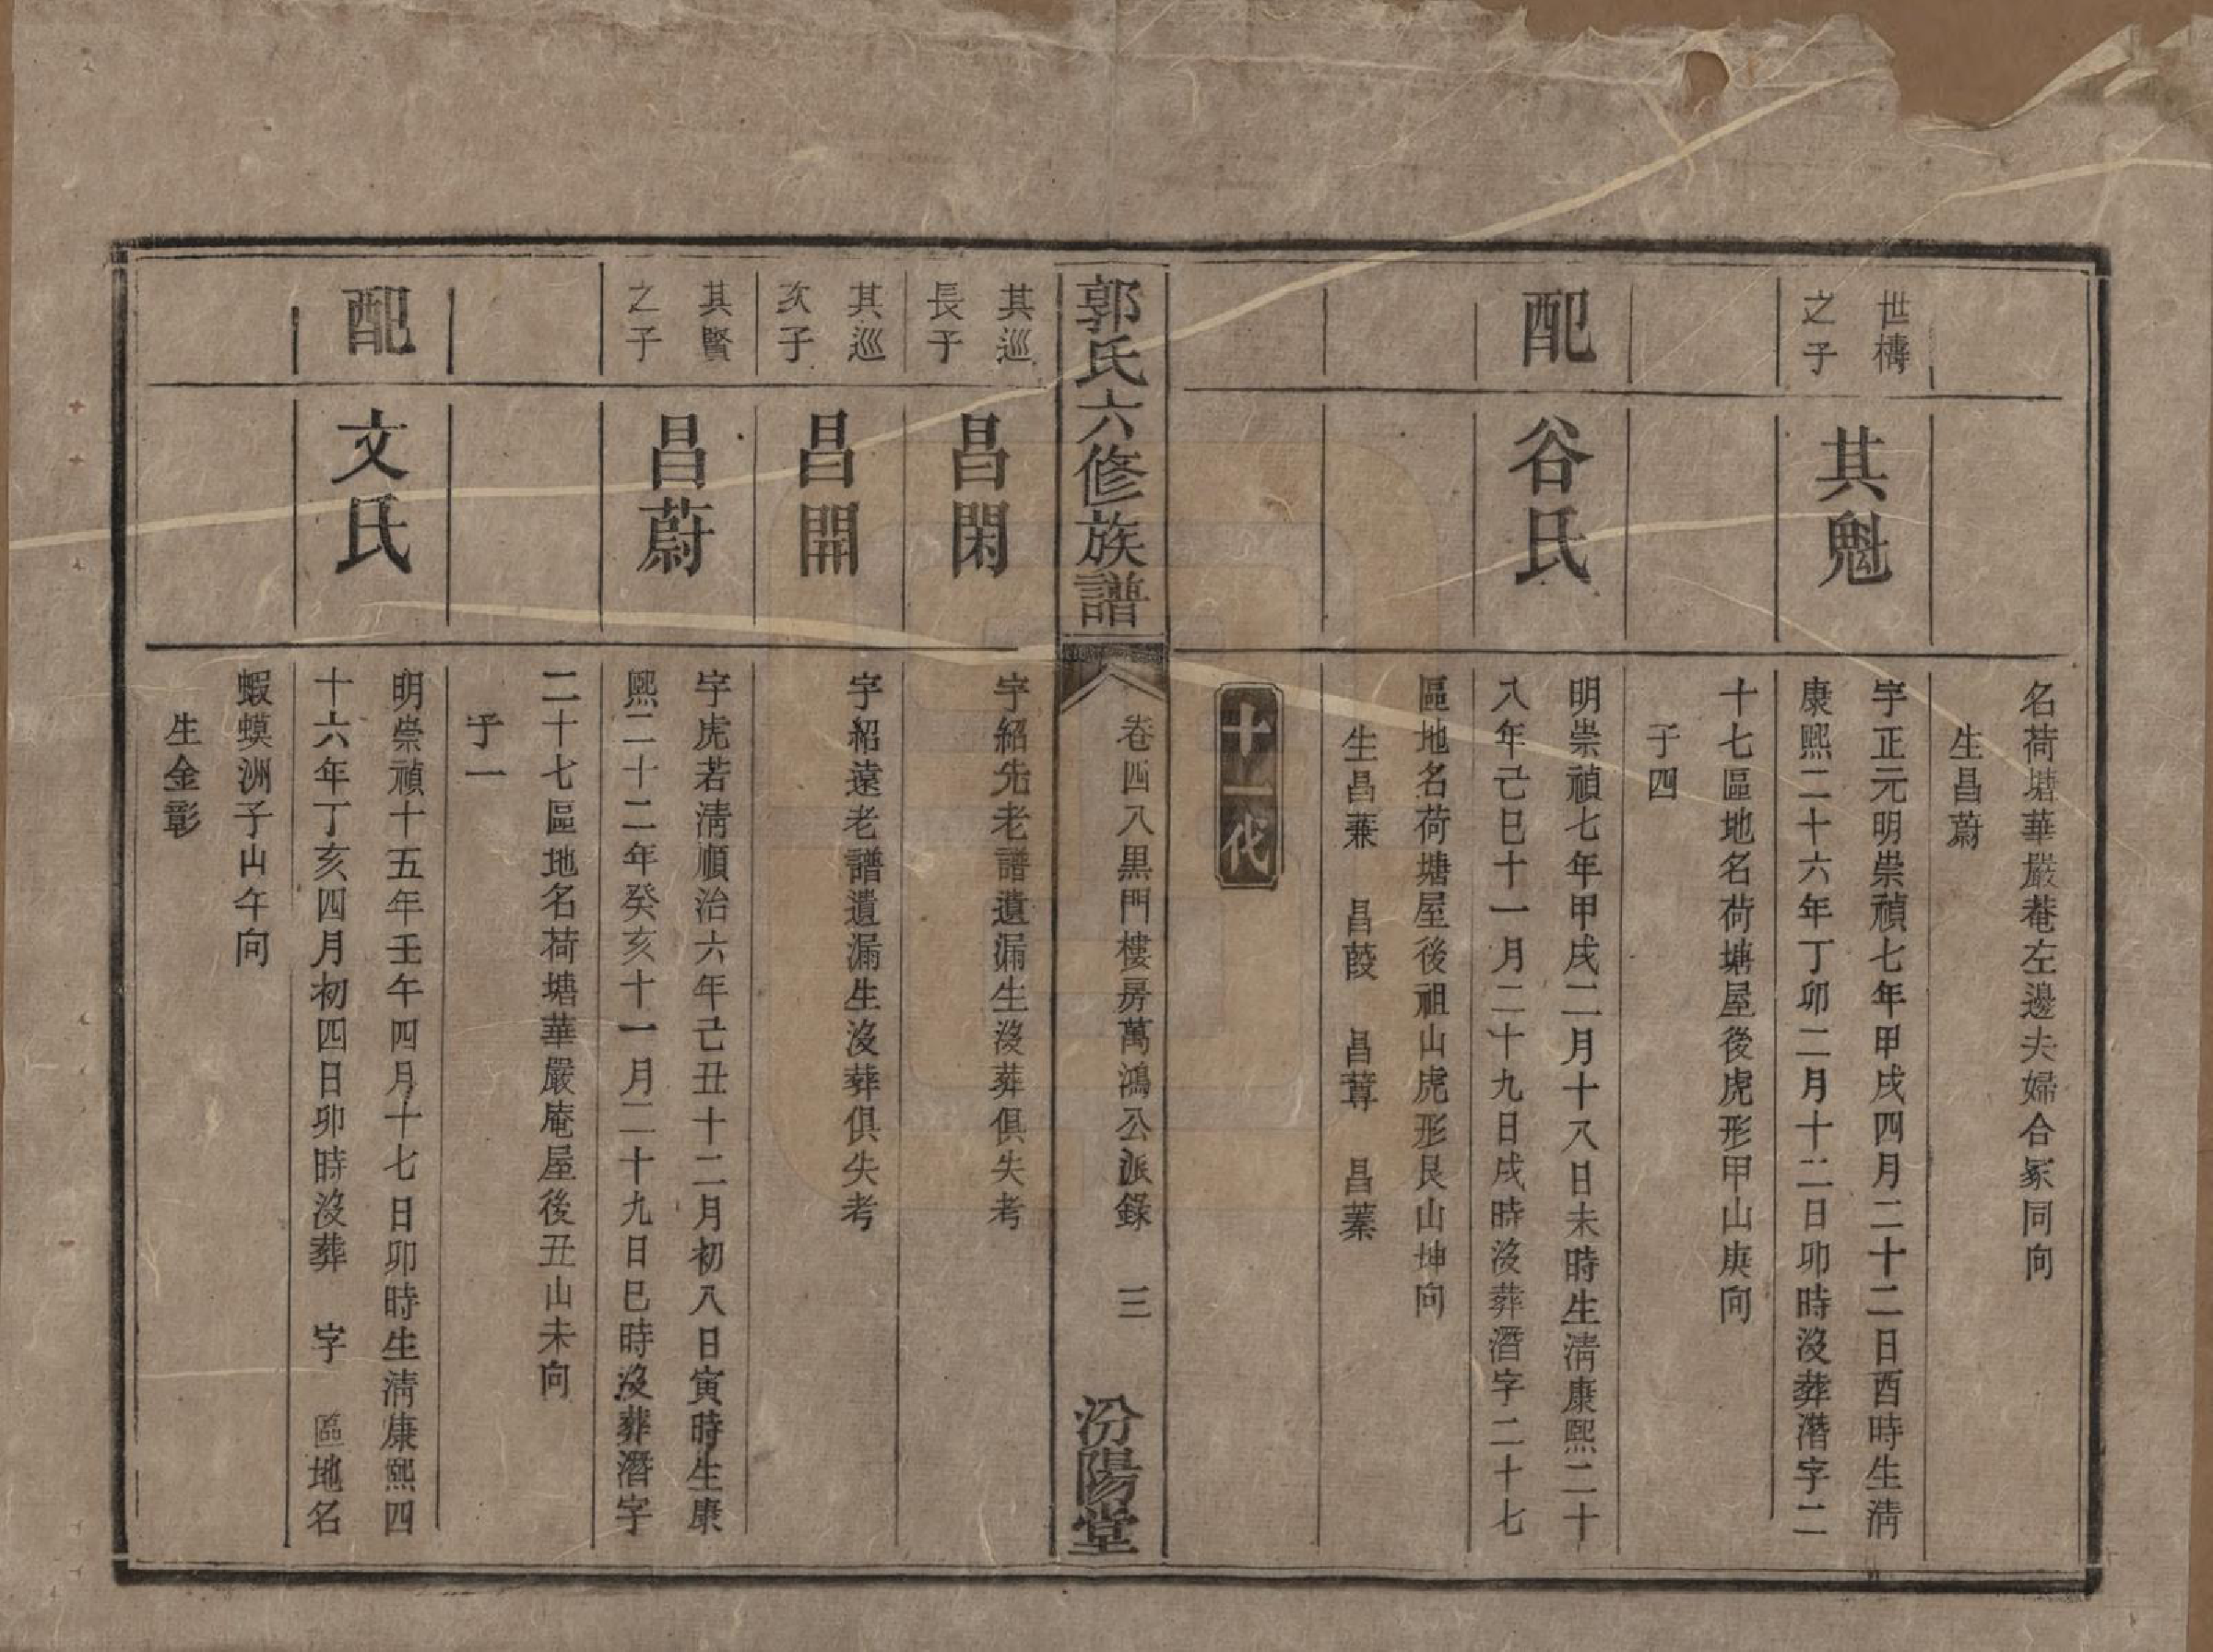 名荷塘華嚴菴左邊夫婦合冢同向
生昌蔚
世檮
之子
其魁
字正元明崇禎七年甲戌四月二十二日酉時生清
康熙二十六年丁卯二月十二日卯時沒葬潛字二
十七區地名荷塘屋後虎形甲山庚向
子四
配
谷氏
明崇禎七年甲戌二月十八日未時生清康熙二十
八年己巳十一月二十九日戌時沒葬潛字二十七
區地名荷塘屋後祖山虎形艮山坤向
生昌蒹 昌葭 昌蓴 昌蓁
十一代
郭氏六修族譜
卷四八黑門樓房萬鴻公派錄 三
汾陽堂
其巡
長子
昌閑
字紹先老譜遺漏生沒葬俱失考
其巡
次子
昌開
字紹遠老譜遺漏生沒葬俱失考
其賢
之子
昌蔚
字虎若清順治六年己丑十二月初八日寅時生康
熙二十二年癸亥十一月二十九日巳時沒葬潛字
二十七區地名荷塘華嚴庵屋後丑山未向
子一
配
文氏
明崇禎十五年壬午四月十七日卯時生清康熙四
十六年丁亥四月初四日卯時沒葬 字 區地名
蝦蟆洲子山午向
生金彰